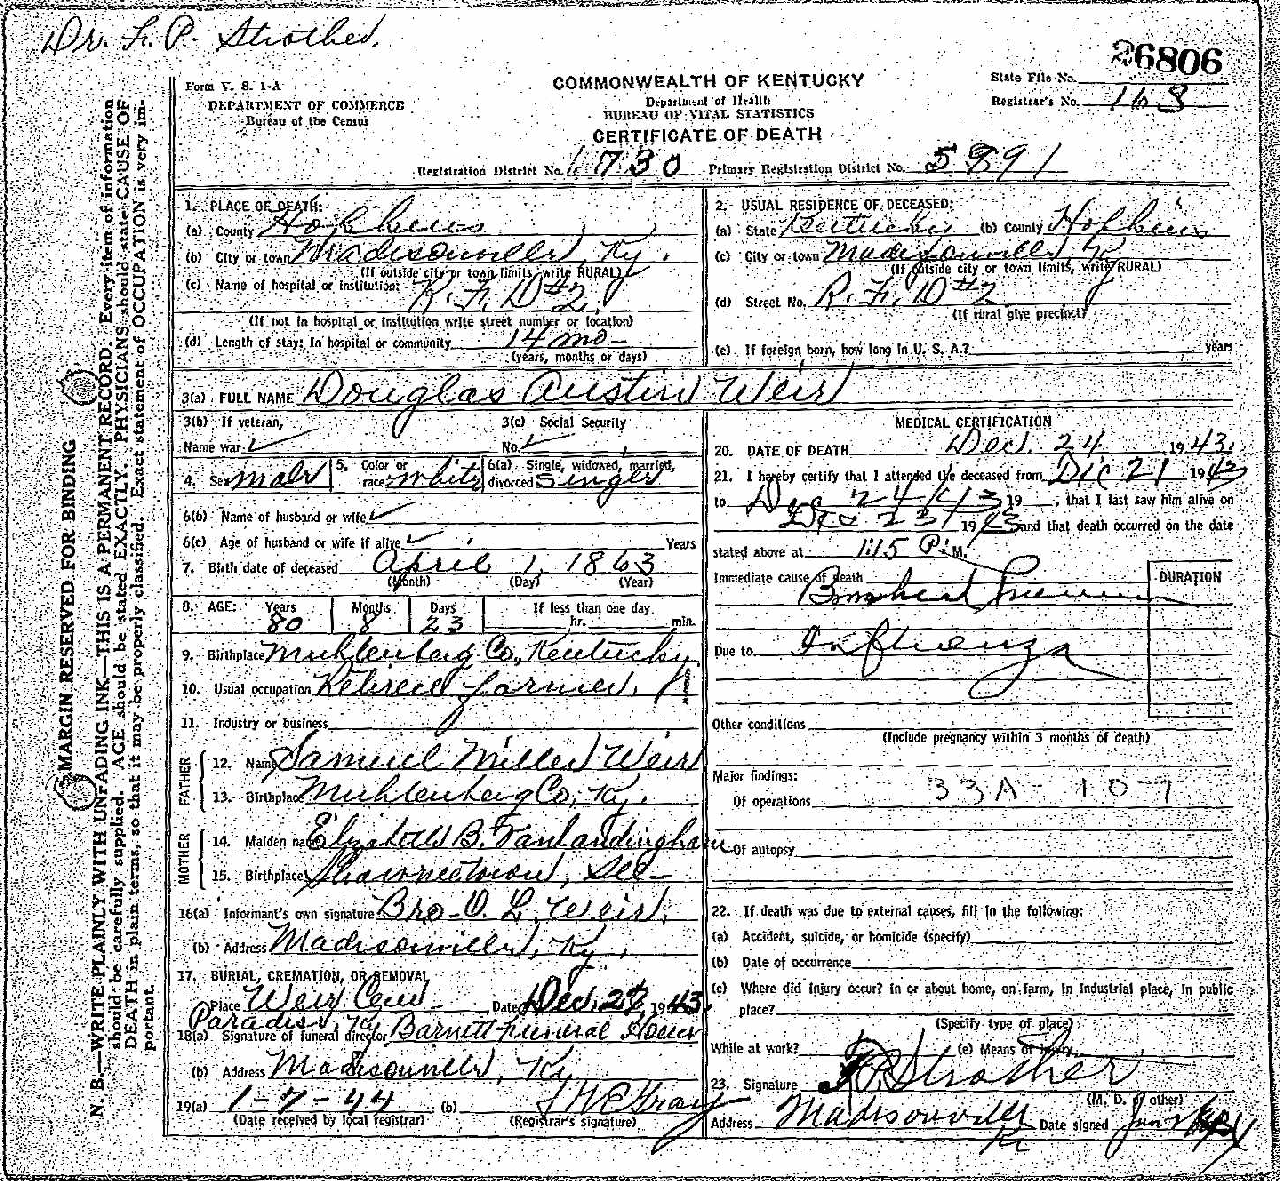 Dr. F. P. Strother.
26806
Form V. S. 1-A
DEPARTMENT OF COMMERCE
Bureau of the Census
COMMONWEALTH OF KENTUCKY
Department of Health
BUREAU OF VITAL STATISTICS
CERTIFICATE OF DEATH
State File No.
Registrar's No. 168
Registration District No. 1730 Primary Registration District No. 5991
MARGIN RESERVED FOR BINDING
N. B.—WRITE PLAINLY WITH UNFADING INK—THIS IS A PERMANENT RECORD. Every item of information
should be carefully supplied. AGE should be stated EXACTLY. PHYSICIANS should state CAUSE OF
DEATH in plain terms, so that it may be properly classified. Exact statement of OCCUPATION is very im-
portant.
1. PLACE OF DEATH:
(a) County Hopkins
(b) City or town Madisonville, Ky.
(If outside city or town limits, write RURAL)
(c) Name of hospital or institution:
R. F. D #2.
(If not in hospital or institution write street number or location)
(d) Length of stay: In hospital or community 14 mo-
(years, months or days)
2. USUAL RESIDENCE OF DECEASED:
(a) State Kentucky (b) County Hopkins
(c) City or town Madisonville Ky
(If outside city or town limits, write RURAL)
(d) Street No. R. F. D #2
(If rural give precinct)
(e) If foreign born, how long in U. S. A.? years
3(a) FULL NAME Douglas Austin Weir
3(b) If veteran, 3(c) Social Security
Name war No.
4. Sex male 5. Color or race white 6(a) Single, widowed, married, divorced Single
6(b) Name of husband or wife
6(c) Age of husband or wife if alive Years
7. Birth date of deceased April 1, 1863
(Month) (Day) (Year)
8. AGE: Years Months Days If less than one day
80 8 23 hr. min.
9. Birthplace Muhlenberg Co., Kentucky
10. Usual occupation Retired farmer.
11. Industry or business
FATHER
12. Name Samuel Miller Weir
13. Birthplace Muhlenberg Co, Ky.
MOTHER
14. Maiden name Elizabeth B. Vanlandingham
15. Birthplace Shawneetown, Ill-
16(a) Informant's own signature Bro-O. L. Weir.
(b) Address Madisonville, Ky.
17. BURIAL, CREMATION, OR REMOVAL
Place Weir Cem Date Dec. 1943.
Paradise, Ky
18(a) Signature of funeral director Barnett Funeral Home
(b) Address Madisonville, Ky
19(a) 1-7-44 (b)
(Date received by local registrar) (Registrar's signature)
MEDICAL CERTIFICATION
20. DATE OF DEATH Dec. 24 1943.
21. I hereby certify that I attended the deceased from Dec 21 1943
to Dec 24 1943 19 , that I last saw him alive on
Dec 23 1943 and that death occurred on the date
stated above at 1:15 P. M.
Immediate cause of death DURATION
Due to Influenza
Other conditions
(Include pregnancy within 3 months of death)
Major findings:
Of operations 33A - 107
Of autopsy
22. If death was due to external causes, fill in the following:
(a) Accident, suicide, or homicide (specify)
(b) Date of occurrence
(c) Where did injury occur? in or about home, on farm, in industrial place, in public
place?
(Specify type of place)
While at work? (e) Means of injury
23. Signature F. P. Strother
(M. D. or other)
Address Madisonville Ky Date signed Jan